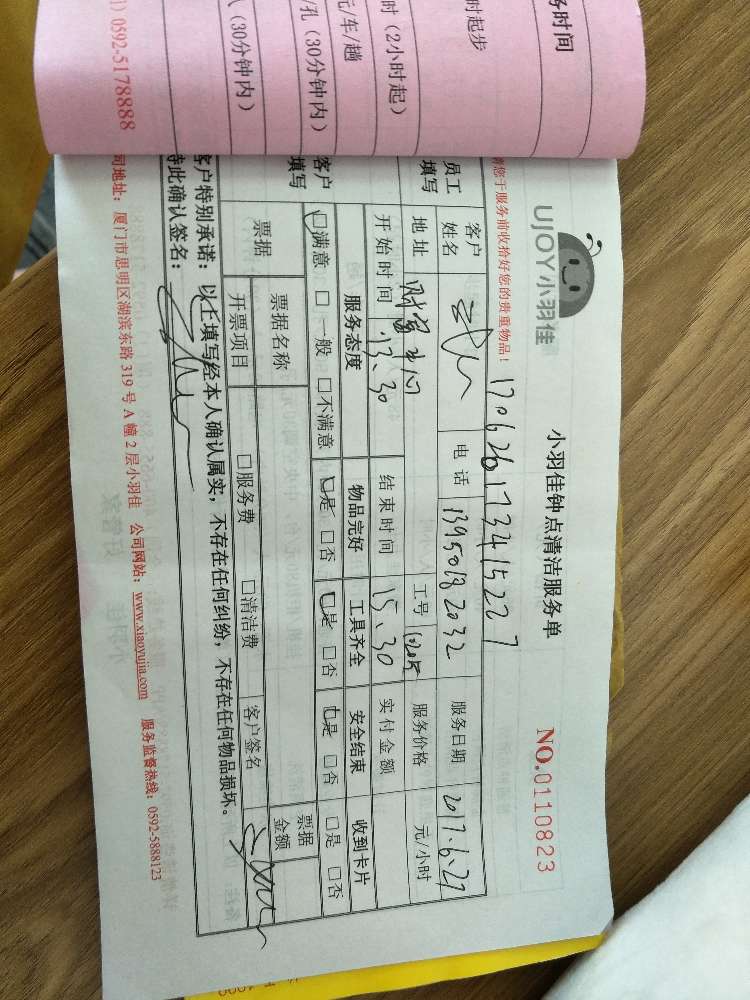 务时间
时起步
时（2小时起）
元/车/趟
孔（30分钟内）
（30分钟内）
0592-5178888
UJOY小羽佳
小羽佳钟点清洁服务单
NO.0110823
请您于服务前收拾好您的贵重物品！
员工填写
客户姓名
电话 13950182032
服务日期 2017.6.27
地址 财富中心
工号
服务价格 元/小时
开始时间 13.30
结束时间 15.30
实付金额
客户填写
服务态度 物品完好 工具齐全 安全结束 收到卡片
□满意 □一般 □不满意 □是 □否 □是 □否 □是 □否 □是 □否
票据
票据名称
票据金额
开票项目 □服务费 □清洁费 客户签名
客户特别承诺：以上填写经本人确认属实，不存在任何纠纷，不存在任何物品损坏。
特此确认签名：
司地址：厦门市思明区湖滨东路319号A幢2层小羽佳 公司网站：www.xiaoyujia.com 服务监督热线：0592-5888123